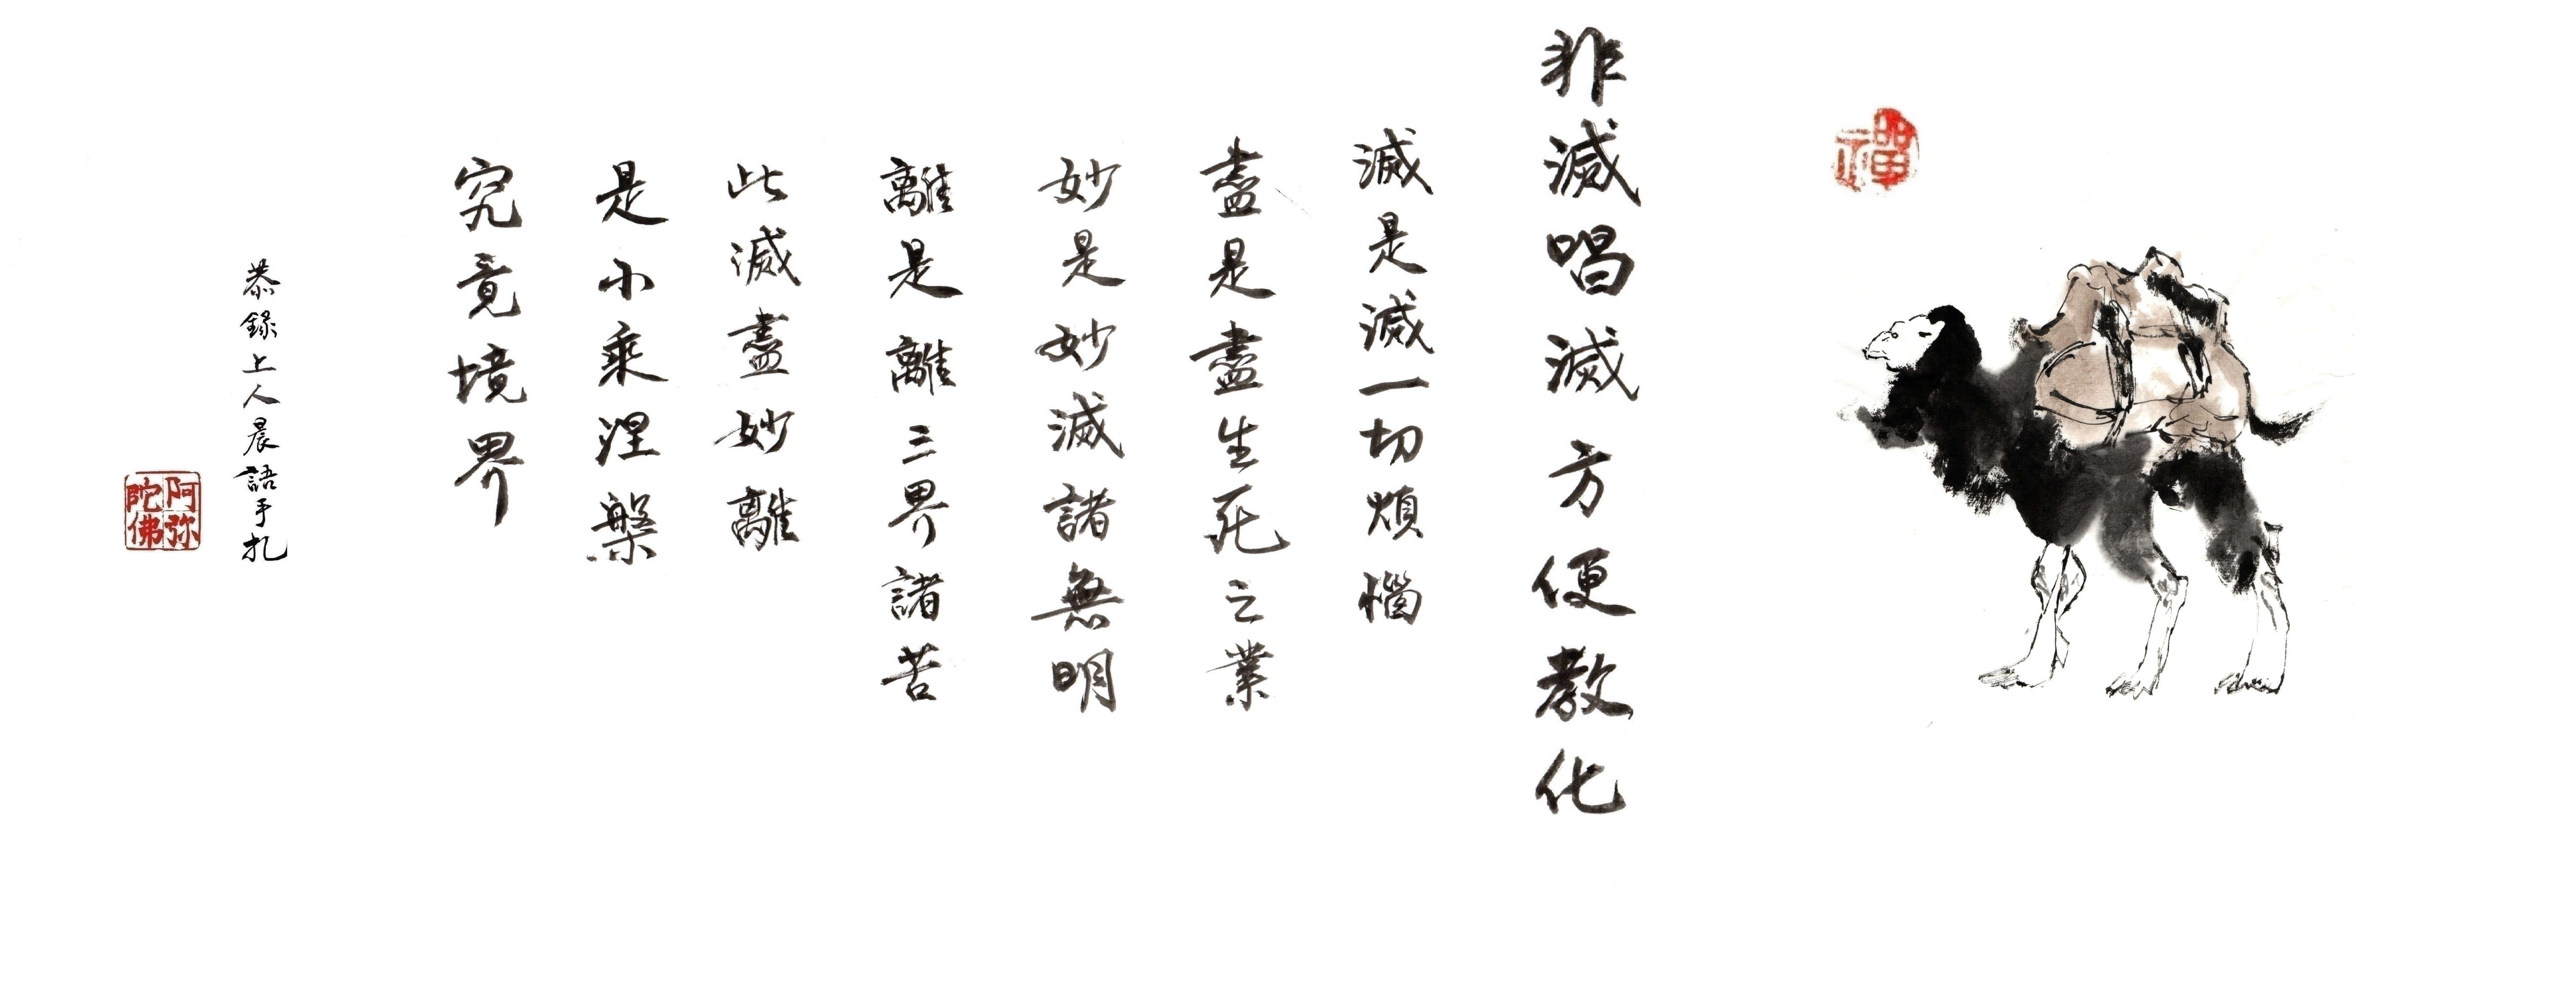 禪
非滅唱滅方便教化
滅是滅一切煩惱
盡是盡生死之業
妙是妙滅諸無明
離是離三界諸苦
此滅盡妙離
是小乘涅槃
究竟境界
恭錄上人晨語手扎
阿弥陀佛